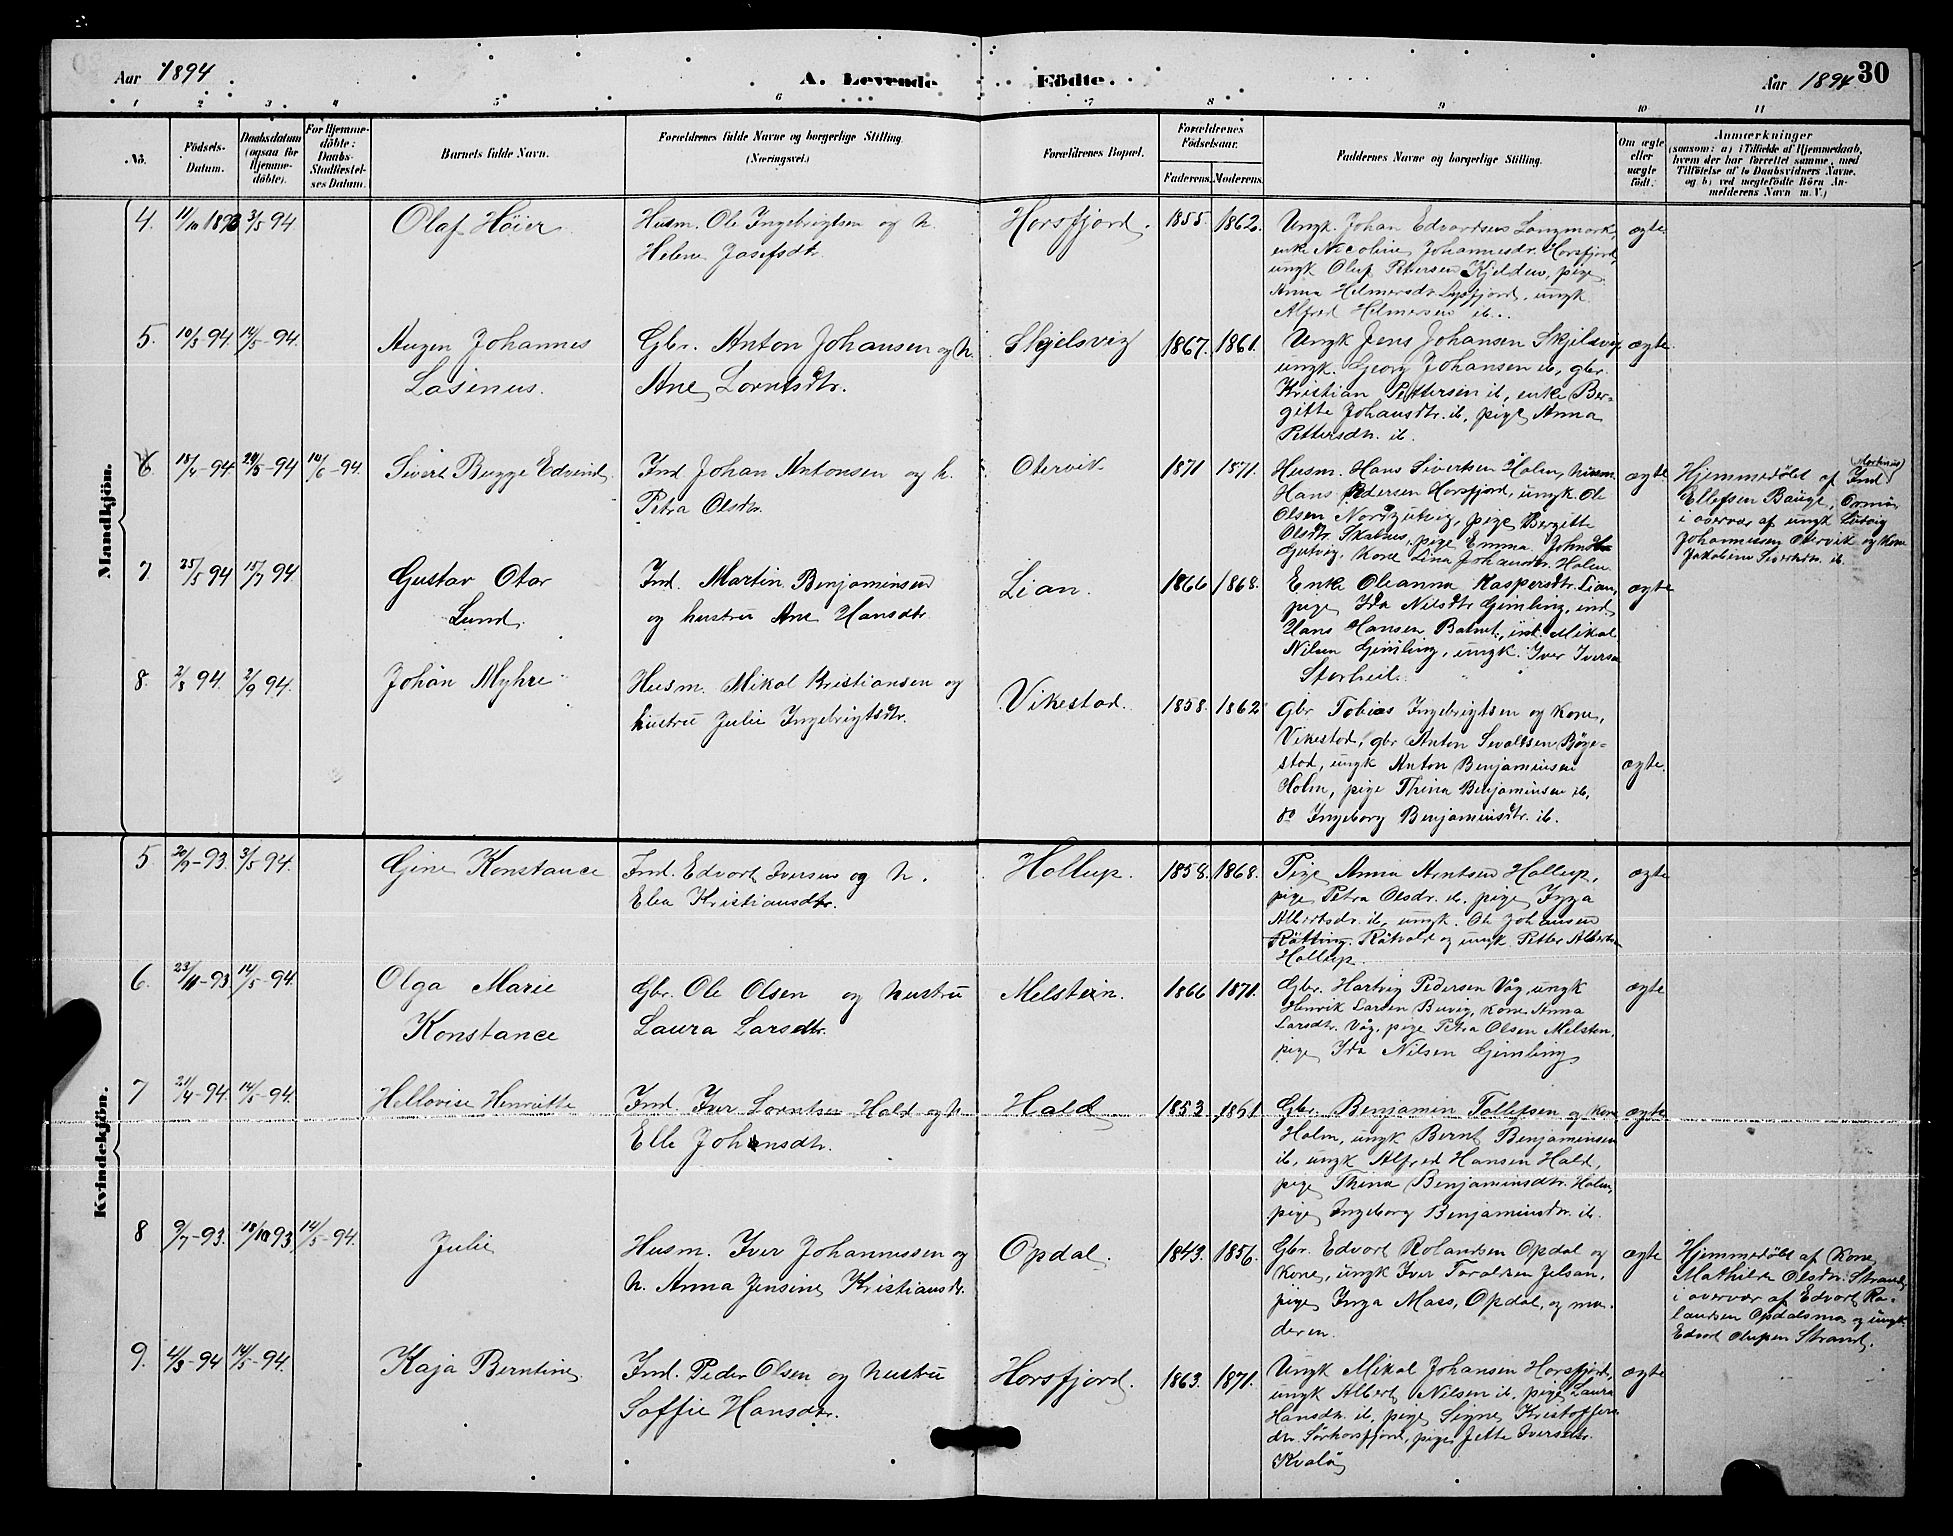 Aar 1894
A. Levende
Födte.
Aar 1894
30
1 2 3 4 5 6 7 8 9 10 11
No.
Födsels-
Datum.
Daabsdatum
(ogsaa for
Hjemme-
döbte).
For Hjemme-
döbte:
Daabs-
Stadfæstel-
ses Datum.
Barnets fulde Navn.
Forældrenes fulde Navne og borgerlige Stilling
(Næringsvei.)
Forældrenes Bopæl.
Forældrenes
Födselsaar.
Faderens.
Moderens.
Faddernes Navne og borgerlige Stilling.
Om ægte
eller
uægte
födt.
Anmærkninger
(saasom: a) i Tilfælde af Hjemmedaab,
hvem der har forrettet samme, med
Tilföielse af to Daabsvidners Navne.
og b) ved uægtefödte Börn An-
melderens Navn m. V.)
Mandkjön.
4. 11/10 1893 3/5 94
Olaf Höier
Husm. Ole Ingebrigtsen og h.
Helene Josefsdtr.
Horsfjord.
1855. 1862.
Ungk. Johan Edvardsens Langmork,
enke Nicoline Johannesdr. Horsfjord,
ungk Oluf Petersen Kjelden, pige
Anna Helmersdr. Lysfjord, ungk
Alfred Helmersen ib..
ægte.
5. 10/3-94 14/5-94.
Augen Johannes
Lasinus.
Gbr. Anton Johansen og h.
Ane Lorntsdtr.
Skjelsvig
1867. 1861.
Ungk Jens Johansen Skjelsvig
ungk. Georg Johansen ib, gbr.
Kristian Pettersen ib, enke Ber-
gitte Johansdtr. ib, pige Anna
Pettersdtr. ib.
ægte.
6. 18/4-94 24/5-94 10/6-94.
Sivert Bugge Edvind
Ind Johan Antonsen og h.
Petra Olsdtr.
Otervik
1871 1871.
Husm. Hans Sivertsen Holm, husm.
Hans Pedersen Horsfjord, ungk. Ole
Olsen Nordgutvig, pige Bergitte
Olsdtr. Skalnes, pige Emma Johnsdtr
Gutvig. Kone Lina Johansdtr. Holm
ægte
Hjemmedöbt af Ind
Ellefsen Bauge,
i overvær af ungk Ludvig
Johannesen Otervik og kone
Jakobine Sivertsdtr. ib.
7. 25/5 94 15/7 94
Gustav Otar
Lund.
Ind. Martin Benjaminsen
og hustru Ane Hansdtr.
Lian.
1866 1868.
Enke Oleanna Kaspersdtr. Lian,
pige Ida Nilsdtr Gimling, ind
Hans Hansen Batnet, ind. Mikal
Nilsen Gimling, ungk. Iver Iversen
Storheil.
ægte
8. 2/8 94. 2/9 94.
Johan Myhre
Husm. Mikal Kristiansen og
hustru Julie Ingebrigtsdtr.
Vikestad.
1858. 1862
Gbr Tobias Ingebrigtsen og kone,
Vikestad, gbr Anton Sivaltsen Böge-
stad, ungk Anton Benjaminsen
Holm, pige Thina Benjaminsen ib,
do Ingeborg Benjaminsdtr. ib.
ægte.
Kvindekjön.
5 20/9-93. 3/5 94.
Gine Konstance
Ind. Edvart Iversen og h.
Elen Kristiansdtr.
Hollup.
1858. 1868.
Pige Anna Arntsen Hollup,
pige Petra Olsdr. ib, pige Inga
Albertsdr. ib, ungk. Ole Johansen
Råtting. Råtvold og ungk. Petter Albertsen
Hollup.
ægte
6. 23/11-93 14/5-94.
Olga Marie
Konstance
Gbr. Ole Olsen og hustru
Laura Larsdtr.
Melstein.
1866 1871.
Gbr. Hartvig Pedersen Våg, ungk
Henrik Larsen Buvig, kone Anna
Larsdtr. Våg, pige Petra Olsen Melsten,
pige Ida Nilsen Gimling
ægte
7 21/4-94. 14/5-94.
Hellovise Henriette
Ind. Iver Lorntsen Hald og h.
Elle Johansdtr.
Hald
1853. 1861
Gbr. Benjamin Tollefsen og kone
Holm, ungk Bernt Benjaminsen
ib, ungk Alfred Hansen Hald,
pige Thina Benjaminsdtr. Holm,
pige Ingeborg Benjaminsdtr. ib.
ægte
8 9/7-93. 18/10 93 14/5-94.
Julie
Husm. Iver Johannessen og
h. Anna Jensine Kristiansdtr.
Opdal.
1843. 1856.
Gbr. Edvart Rolandsen Opdal og
kone, ungk Iver Toraldsen Jelsan,
pige Inga Mass, Opdal, og mo-
deren.
ægte
Hjemmedöbt af Kone
Mathilde Olsdtr. Strand
i overvær af Edvart Ro-
landsen Opdalsmo og ungk.
Edvart Olufsen Strand.
9. 4/3-94 14/5-94.
Kaja Berntine
Ind. Peder Olsen og hustru
Soffie Hansdtr.
Horsfjord.
1863. 1871.
Ungk Mikal Johansen Horsfjord,
ungk Albert Nilsen ib, pige Laura
Hansdtr. ib, pige Signe Kristoffers-
dtr. Sörhorsfjord, pige Jette Iversdtr.
Kvalö
ægte